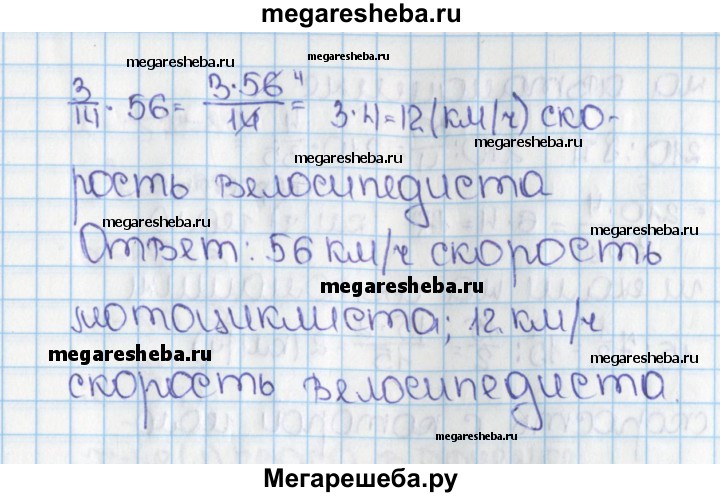 megaresheba.ru
megaresheba.ru
megaresheba.ru
3/14 · 56 = 3·56/14 = 4 3·4=12 (км/ч) ско-
megaresheba.ru
megaresheba.ru
рость велосипедиста
megaresheba.ru
Ответ: 56 км/ч скорость
megaresheba.ru
мотоциклиста; 12 км/ч
megaresheba.ru
megaresheba.ru
скорость велосипедиста.
megaresheba.ru
megaresheba.ru
Мегарешеба.ру